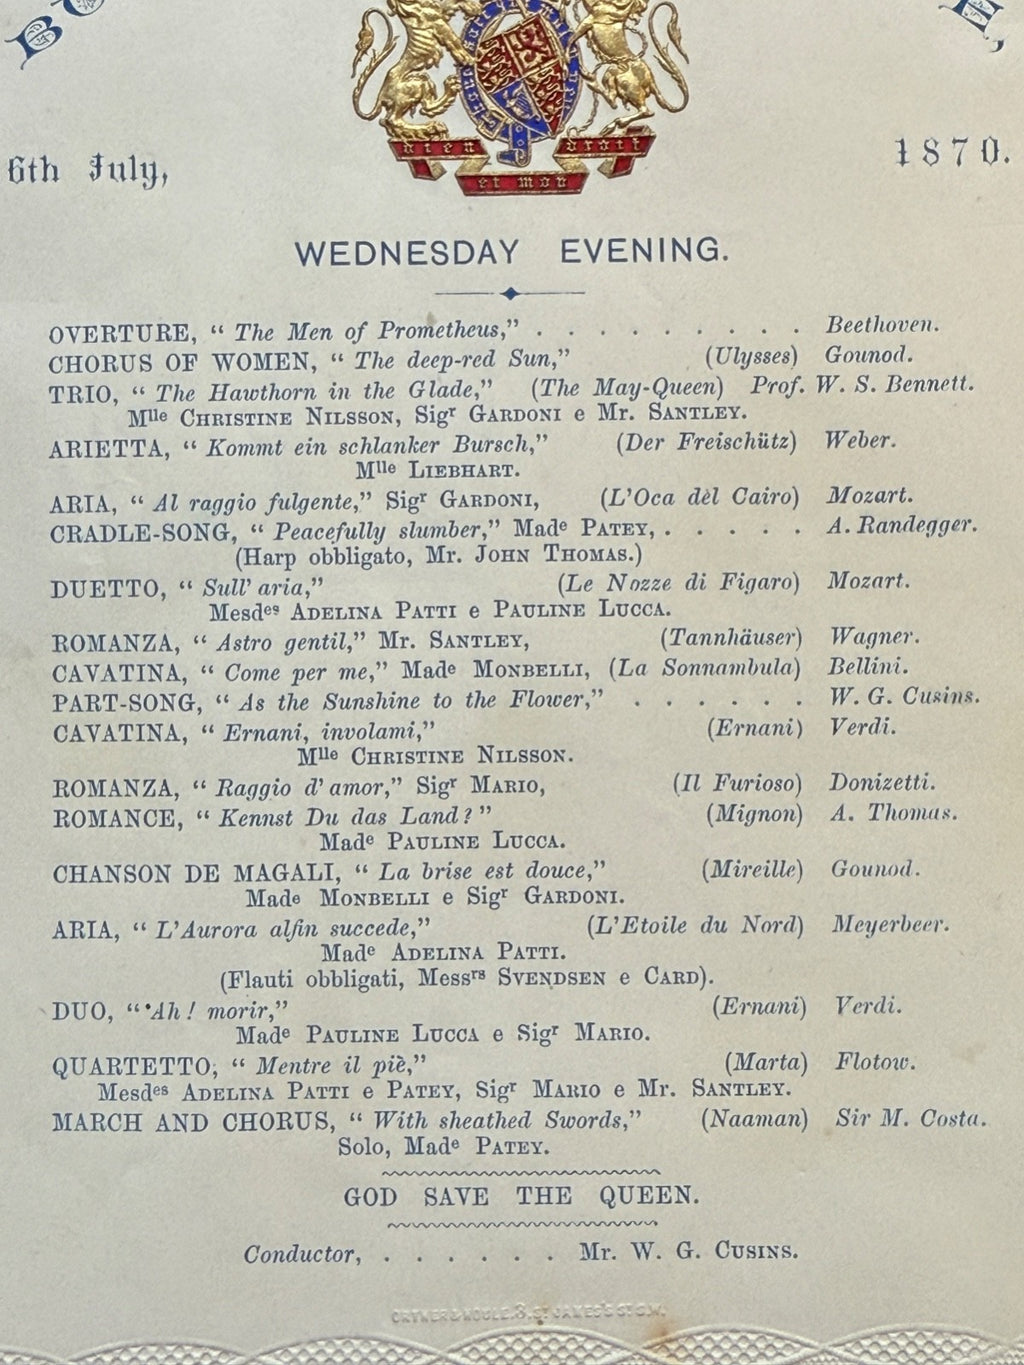 dieu et mon droit
6th July, 1870.
WEDNESDAY EVENING.
OVERTURE, “ The Men of Prometheus,” . . . . . . . . . . Beethoven.
CHORUS OF WOMEN, “ The deep-red Sun,” (Ulysses) Gounod.
TRIO, “ The Hawthorn in the Glade,” (The May-Queen) Prof. W. S. Bennett.
Mlle CHRISTINE NILSSON, Sigr GARDONI e Mr. SANTLEY.
ARIETTA, “ Kommt ein schlanker Bursch,” (Der Freischütz) Weber.
Mlle LIEBHART.
ARIA, “ Al raggio fulgente,” Sigr GARDONI, (L'Oca dèl Cairo) Mozart.
CRADLE-SONG, “ Peacefully slumber,” Made PATEY, . . . . . A. Randegger.
(Harp obbligato, Mr. JOHN THOMAS.)
DUETTO, “ Sull' aria,” (Le Nozze di Figaro) Mozart.
Mesdes ADELINA PATTI e PAULINE LUCCA.
ROMANZA, “ Astro gentil,” Mr. SANTLEY, (Tannhäuser) Wagner.
CAVATINA, “ Come per me,” Made MONBELLI, (La Sonnambula) Bellini.
PART-SONG, “ As the Sunshine to the Flower,” . . . . . . W. G. Cusins.
CAVATINA, “ Ernani, involami,” (Ernani) Verdi.
Mlle CHRISTINE NILSSON.
ROMANZA, “ Raggio d' amor,” Sigr MARIO, (Il Furioso) Donizetti.
ROMANCE, “ Kennst Du das Land ? ” (Mignon) A. Thomas.
Made PAULINE LUCCA.
CHANSON DE MAGALI, “ La brise est douce,” (Mireille) Gounod.
Made MONBELLI e Sigr GARDONI.
ARIA, “ L'Aurora alfin succede,” (L'Etoile du Nord) Meyerbeer.
Made ADELINA PATTI.
(Flauti obbligati, Messrs SVENDSEN e CARD).
DUO, “ Ah ! morir,” (Ernani) Verdi.
Made PAULINE LUCCA e Sigr MARIO.
QUARTETTO, “ Mentre il piè,” (Marta) Flotow.
Mesdes ADELINA PATTI e PATEY, Sigr MARIO e Mr. SANTLEY.
MARCH AND CHORUS, “ With sheathed Swords,” (Naaman) Sir M. Costa.
Solo, Made PATEY.
GOD SAVE THE QUEEN.
Conductor, . . . . . . Mr. W. G. CUSINS.
8, ST JAMES'S ST S.W.